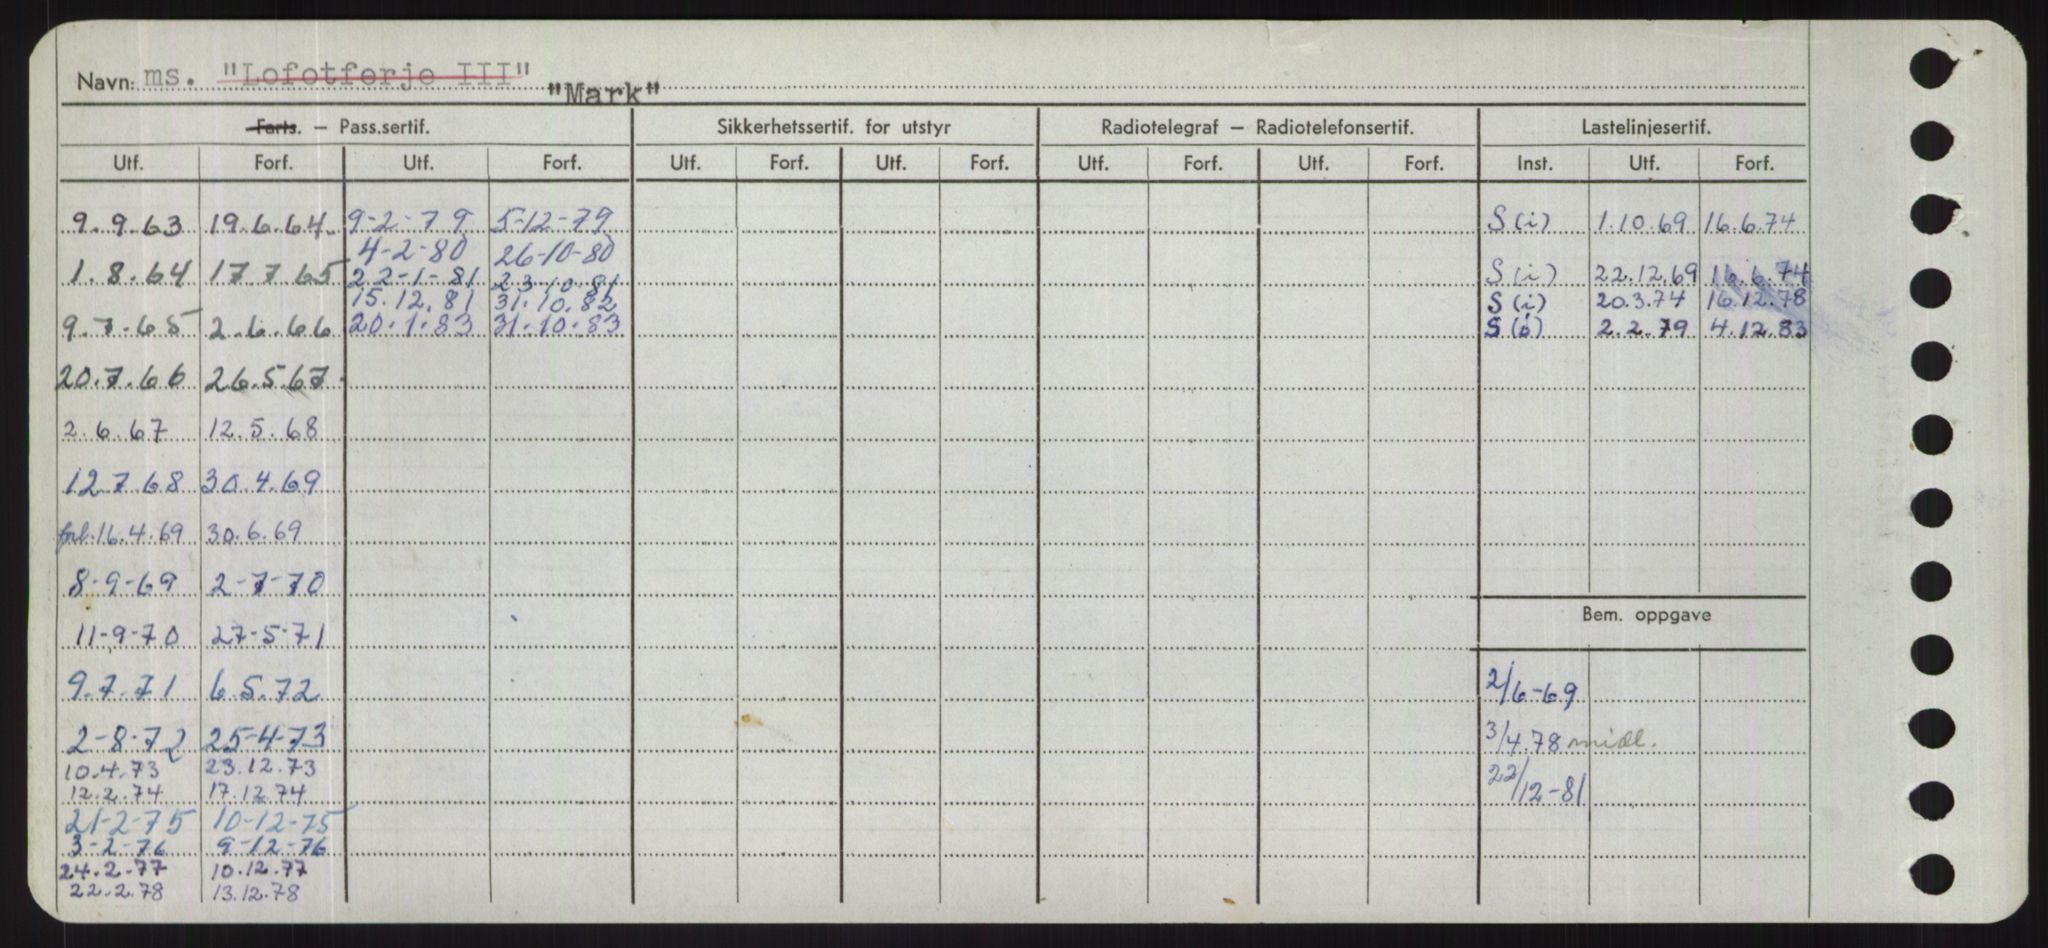 Navn: ms. "Lofotferje III" "Mark"
Farts. – Pass.sertif. Sikkerhetssertif. for utstyr Radiotelegraf – Radiotelefonsertif. Lastelinjesertif.
Utf. Forf. Utf. Forf. Utf. Forf. Utf. Forf. Utf. Forf. Utf. Forf. Inst. Utf. Forf.
9.9.63 19.6.64. 9-2-79 5-12-79 S(i) 1.10.69 16.6.74
4-2-80 26-10-80
1.8.64 17.7.65 22-1-81 23.10.81 S(i) 22.12.69 16.6.74
15.12.81 31.10.82 S(i) 20.3.74 16.12.78
9.7.65 2.6.66 20.1.83 31.10.83 S(i) 2.2.79 4.12.83
20.7.66 26.5.67.
2.6.67 12.5.68
12.7.68 30.4.69
forl.16.4.69 30.6.69
8-9-69 2-7-70
Bem. oppgave
11-9-70 27-5-71
9.7.71 6.5.72 2/6-69
2-8-72 25-4-73 3/4.78 midl.
10.4.73 23.12.73
12.2.74 17.12.74 22/12-81
21-2-75 10-12-75
3-2-76 9-12-76
24.2.77 10.12.77
22.2.78 13.12.78